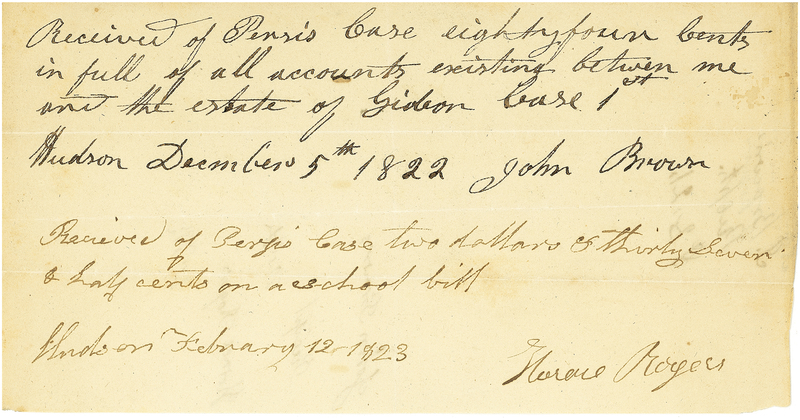 Received of Persis Case eightyfour Cents
in full of all accounts existing betwen me
and the estate of Gideon Case 1st
Hudson December 5th 1822 John Brown
Recieved of Persis Case two dollars & thirty Seven
& half cents on a school bill
Hudson February 12 1823
Horace Rogers